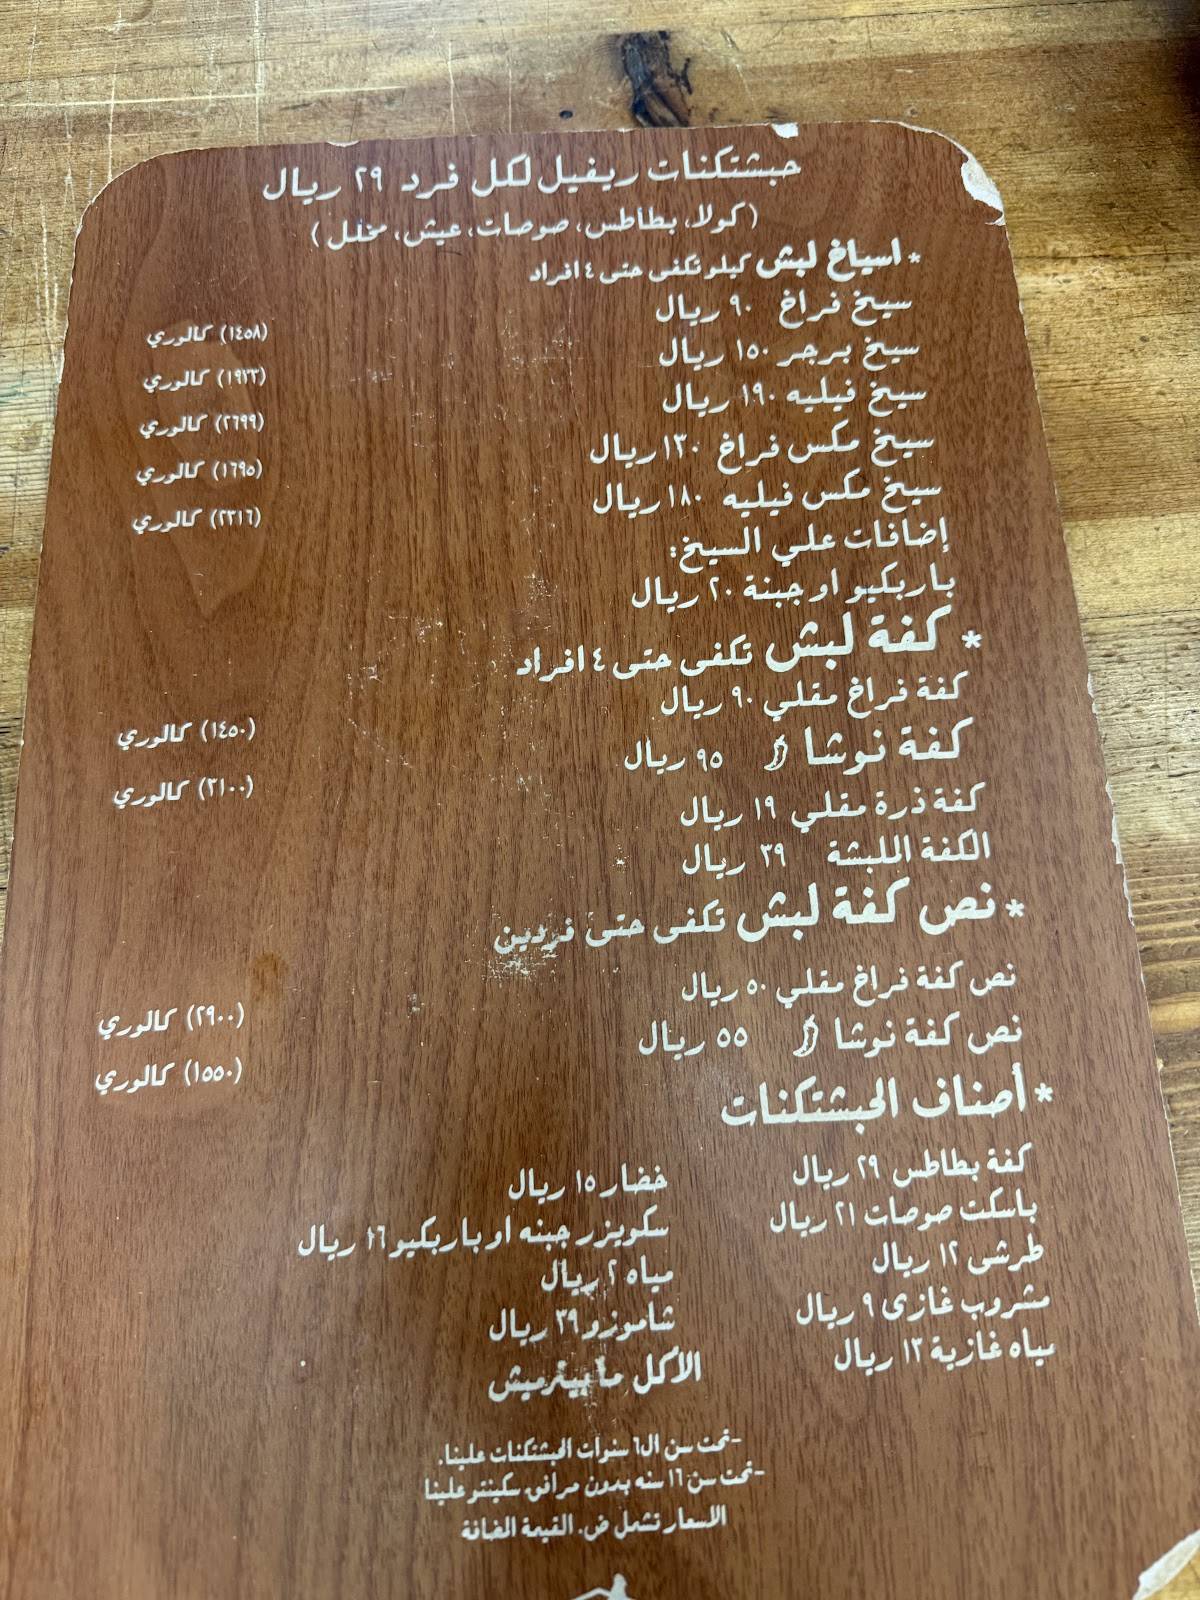 حبشتكنات ريفيل لكل فرد ٢٩ ريال
(كولا، بطاطس، صوصات، عيش، مخلل)
* اسياخ لبش كيلو تكفى حتى ٤ افراد
سيخ فراخ ٩٠ ريال (١٤٥٨) كالوري
سيخ برجر ١٥٠ ريال (١٩٢٣) كالوري
سيخ فيليه ١٩٠ ريال (٢٦٩٩) كالوري
سيخ مكس فراخ ١٣٠ ريال (١٦٩٥) كالوري
سيخ مكس فيليه ١٨٠ ريال (٢٣١٦) كالوري
إضافات علي السيخ:
باربكيو او جبنة ٢٠ ريال
* كفة لبش تكفى حتى ٤ افراد
كفة فراخ مقلي ٩٠ ريال (١٤٥٠) كالوري
كفة نوشا ٩٥ ريال (٣١٠٠) كالوري
كفة ذرة مقلي ١٩ ريال
الكفة الملبشة ٣٩ ريال
* نص كفة لبش تكفى حتى فردين
نص كفة فراخ مقلي ٥٠ ريال (٢٩٠٠) كالوري
نص كفة نوشا ٥٥ ريال (١٥٥٠) كالوري
* أصناف الحبشتكنات
كفة بطاطس ٢٩ ريال خضار ١٥ ريال
باسكت صوصات ٢١ ريال سكويزر جبنه او باربكيو ١٦ ريال
طرشى ١٢ ريال مياه ٢ ريال
مشروب غازى ٩ ريال شاموزو ٣٩ ريال
مياه غازية ١٣ ريال الاكل مابيترميش
-تحت سن ال٦ سنوات الحبشتكنات علينا.
-تحت سن ١٦ سنه بدون مرافق سكينتو علينا
الاسعار تشمل ض. القيمة المضافة